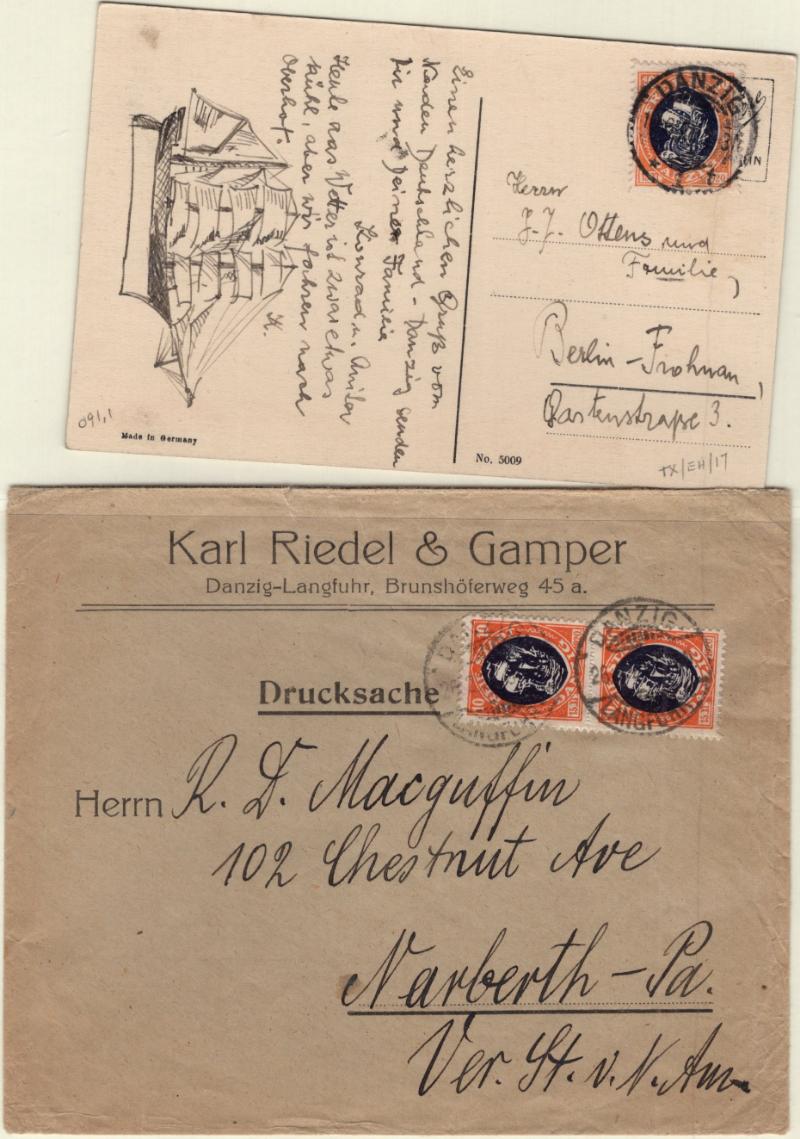 Einen herzlichen Gruß vom
Norden Deutschland - Danzig senden
Dir und Deiner Familie
Konrad u. Anita
Heute das Wetter ist zwar etwas
kühl, aber wir fahren nach
Oberhof.
K.
091,1
Made in Germany
No. 5009
DANZIG
Herrn
J. J. Ottens und
Familie,
Berlin - Frohnau,
Gartenstraße 3.
TX/EH/17
Karl Riedel & Gamper
Danzig-Langfuhr, Brunshöferweg 45 a.
DANZIG
LANGFUHR
10
10
DANZIG
LANGFUHR
Drucksache
Herrn R. D. Macguffin
102 Chestnut Ave
Narberth - Pa.
Ver. St. v. N. Am.